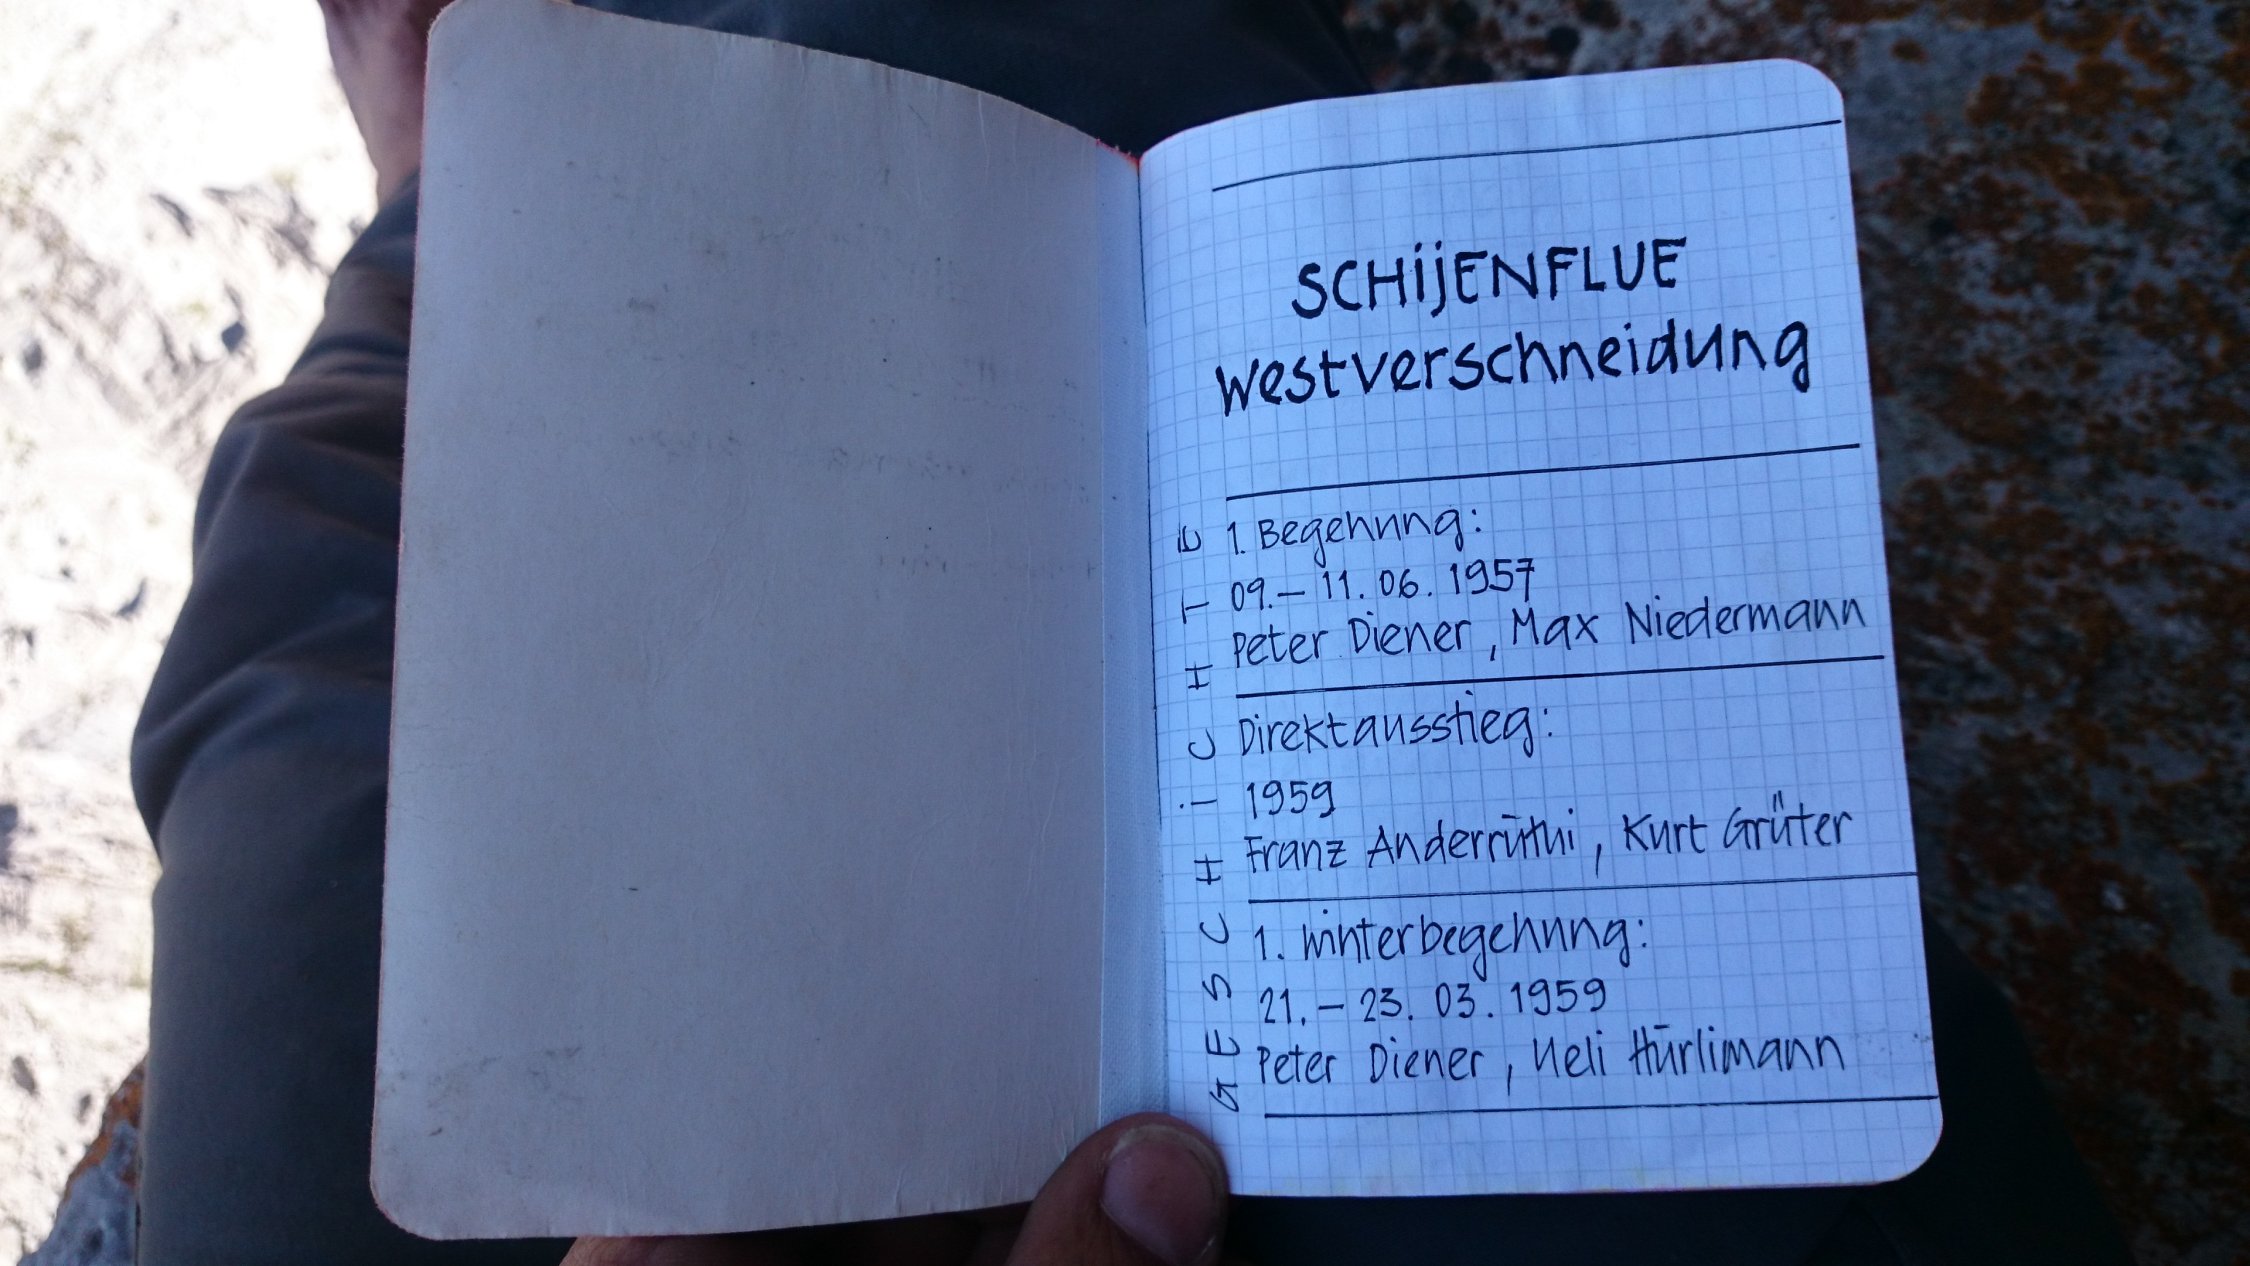 SCHijENFLUE
Westverschneidung
GESCHiCHTE
1. Begehung:
09.– 11. 06. 1957
Peter Diener, Max Niedermann
Direktausstieg:
1959
Franz Anderrüthi, Kurt Grüter
1. Winterbegehung:
21. – 23. 03. 1959
Peter Diener, Ueli Hürlimann